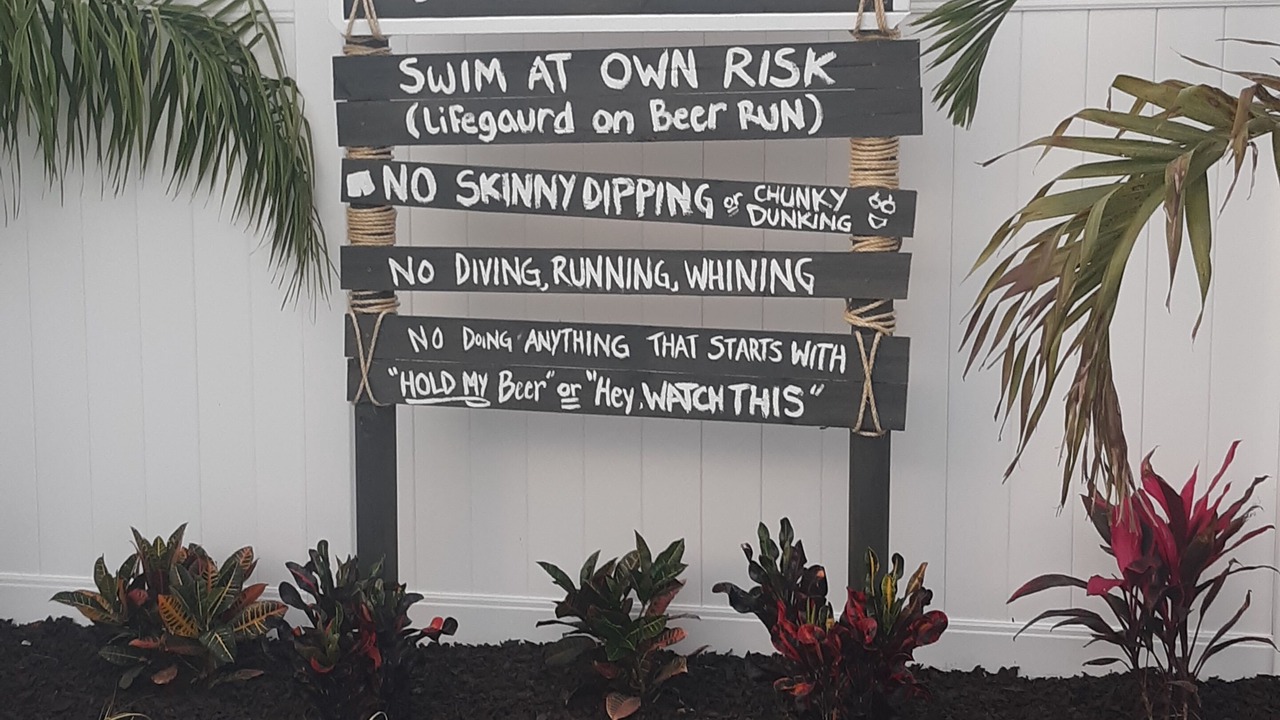 SWIM AT OWN RISK
(Lifegaurd on Beer RUN)
NO SKINNY DIPPING or CHUNKY DUNKING
NO DIVING, RUNNING, WHINING
NO DOiNG ANYTHING THAT STARTS WITH
"HOLD MY Beer" or "Hey, WATCH THIS"